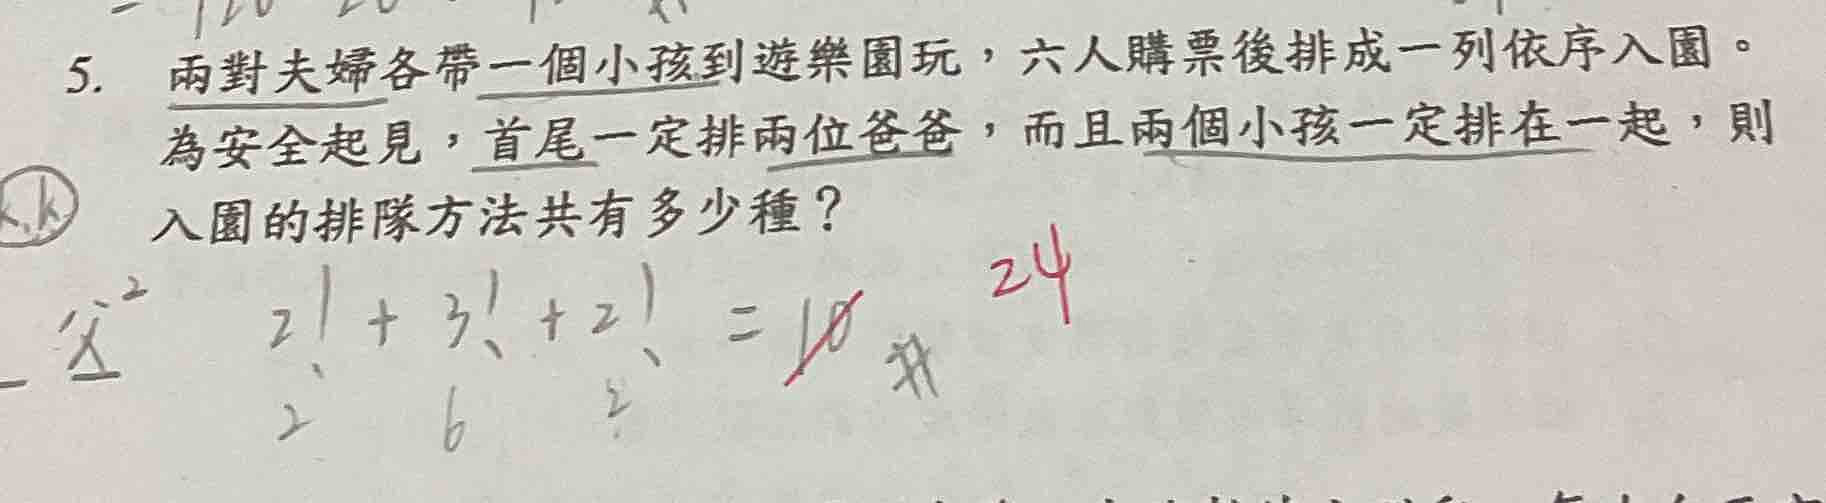 5. 兩對夫婦各帶一個小孩到遊樂園玩，六人購票後排成一列依序入園。
為安全起見，首尾一定排兩位爸爸，而且兩個小孩一定排在一起，則
入園的排隊方法共有多少種？
24
2! + 3! + 2! = 10 #
2 6 2